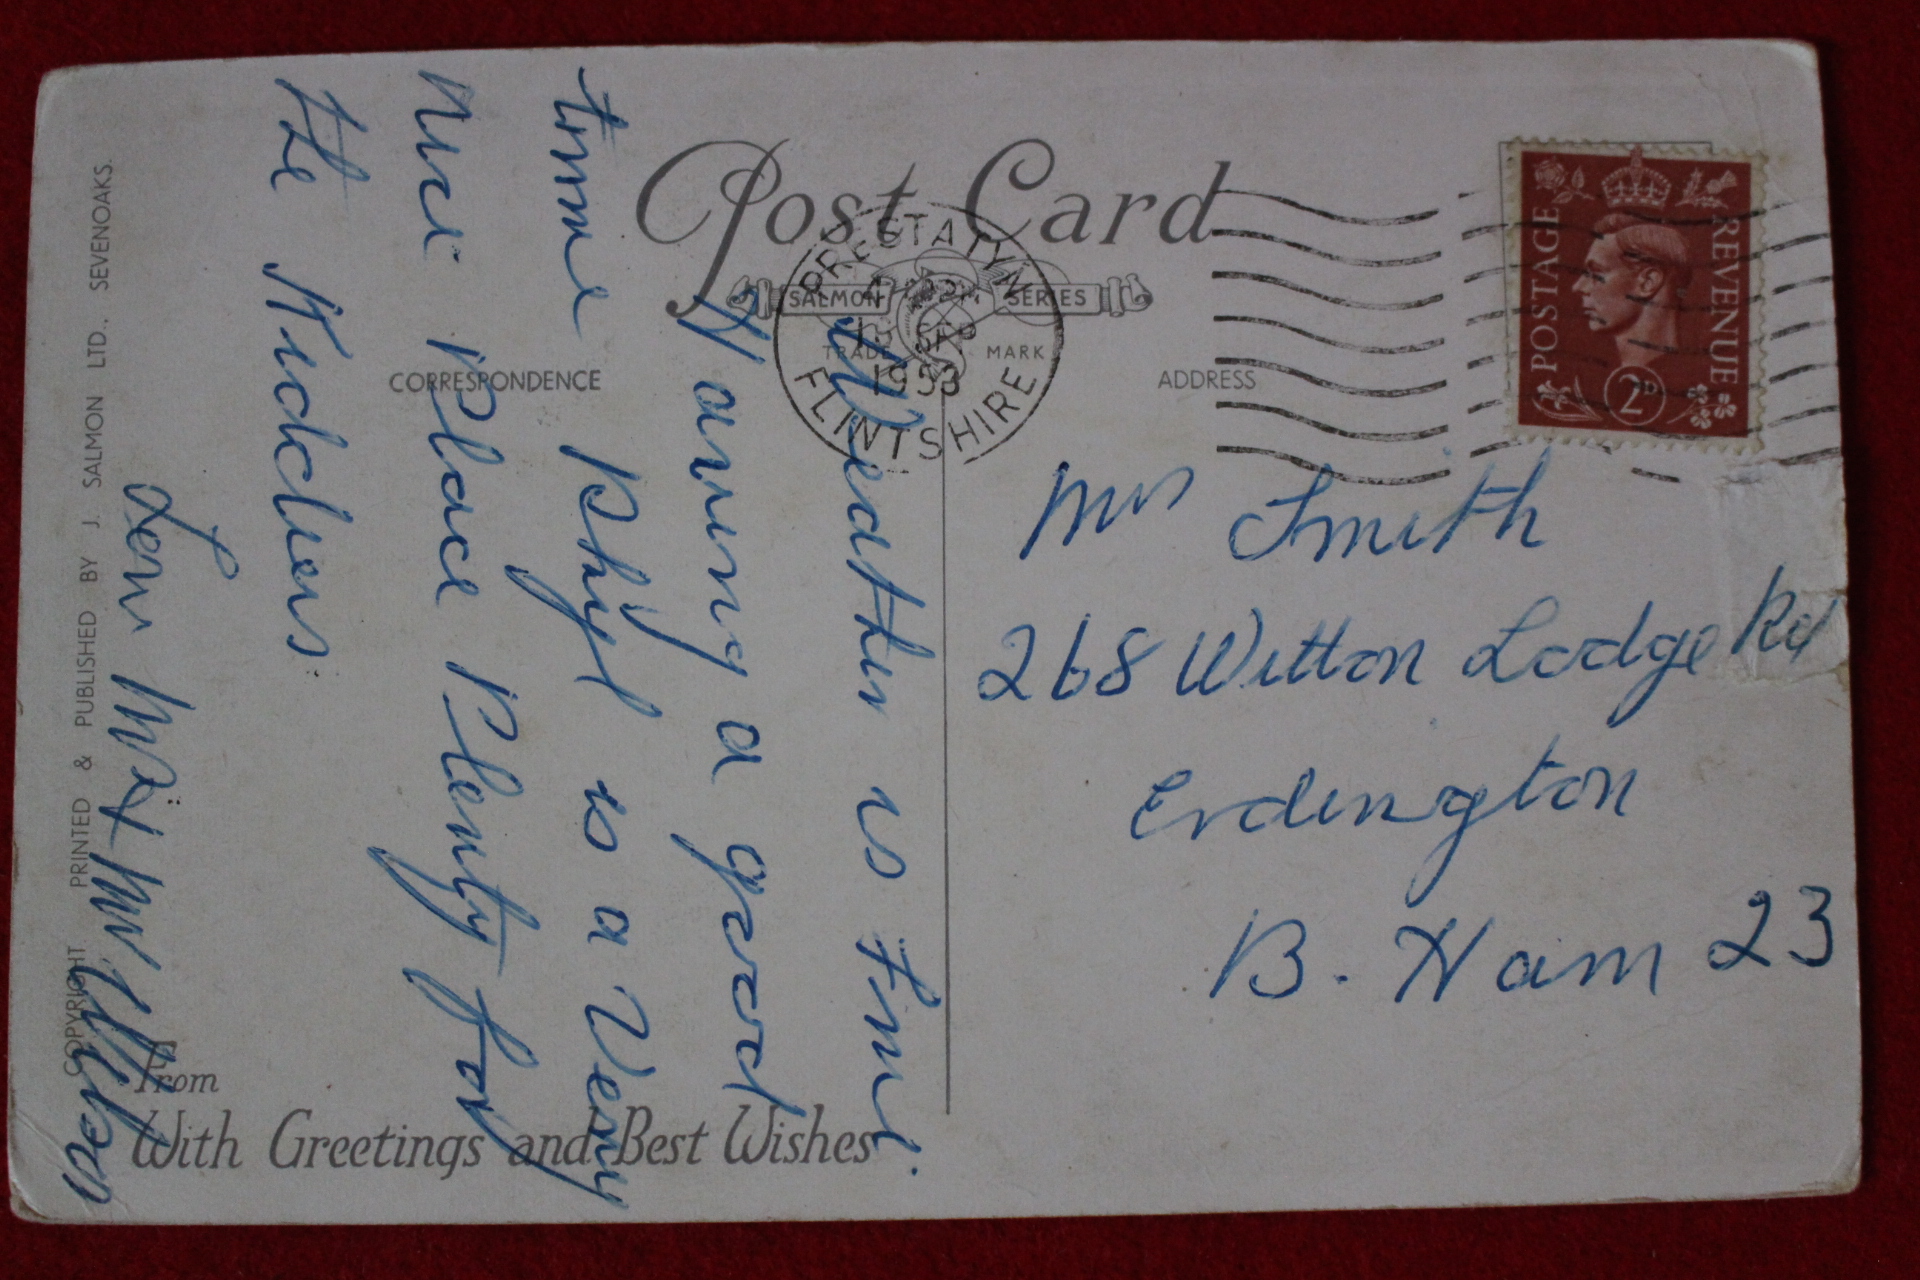 Post Card
SALMON SERIES
TRADE MARK
CORRESPONDENCE
ADDRESS
PRESTATYN
SEP
1953
FLINTSHIRE
POSTAGE
REVENUE
2D
Weather is Fine.
Having a good
time Rhyl is a Very
Nice Place Plenty for
the Kiddies.
From
With Greetings and Best Wishes
COPYRIGHT PRINTED & PUBLISHED BY J. SALMON LTD., SEVENOAKS.
Mrs Smith
268 Witton Lodge Rd
Erdington
B. Ham 23